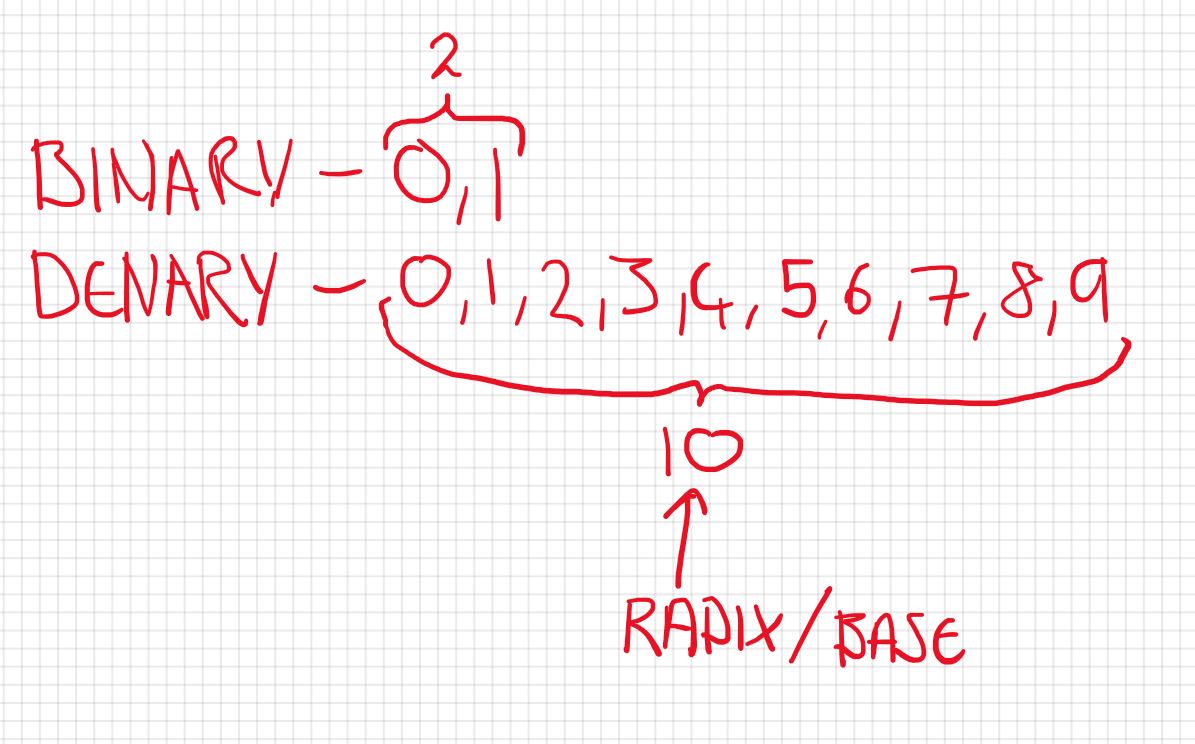 2
BINARY - 0,1
DENARY - 0,1,2,3,4,5,6,7,8,9
10
RADIX/BASE